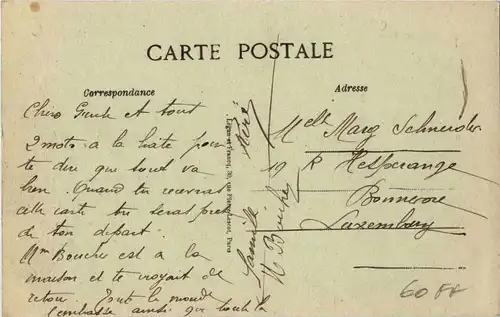 CARTE POSTALE
Correspondance
Adresse
et tout
2 mots a la hate pour
te dire que tout va
bien. Quand tu recevras
cette carte tu seras pret
de ton départ.
Mme Boucher est a la
maison et te croyait de
retour. Tout le monde
t'embrasse ainsi que toute la
famille
Melle Marg Schneider
19 R Hesperange
Bonnevoie
Luxembourg
60 FF